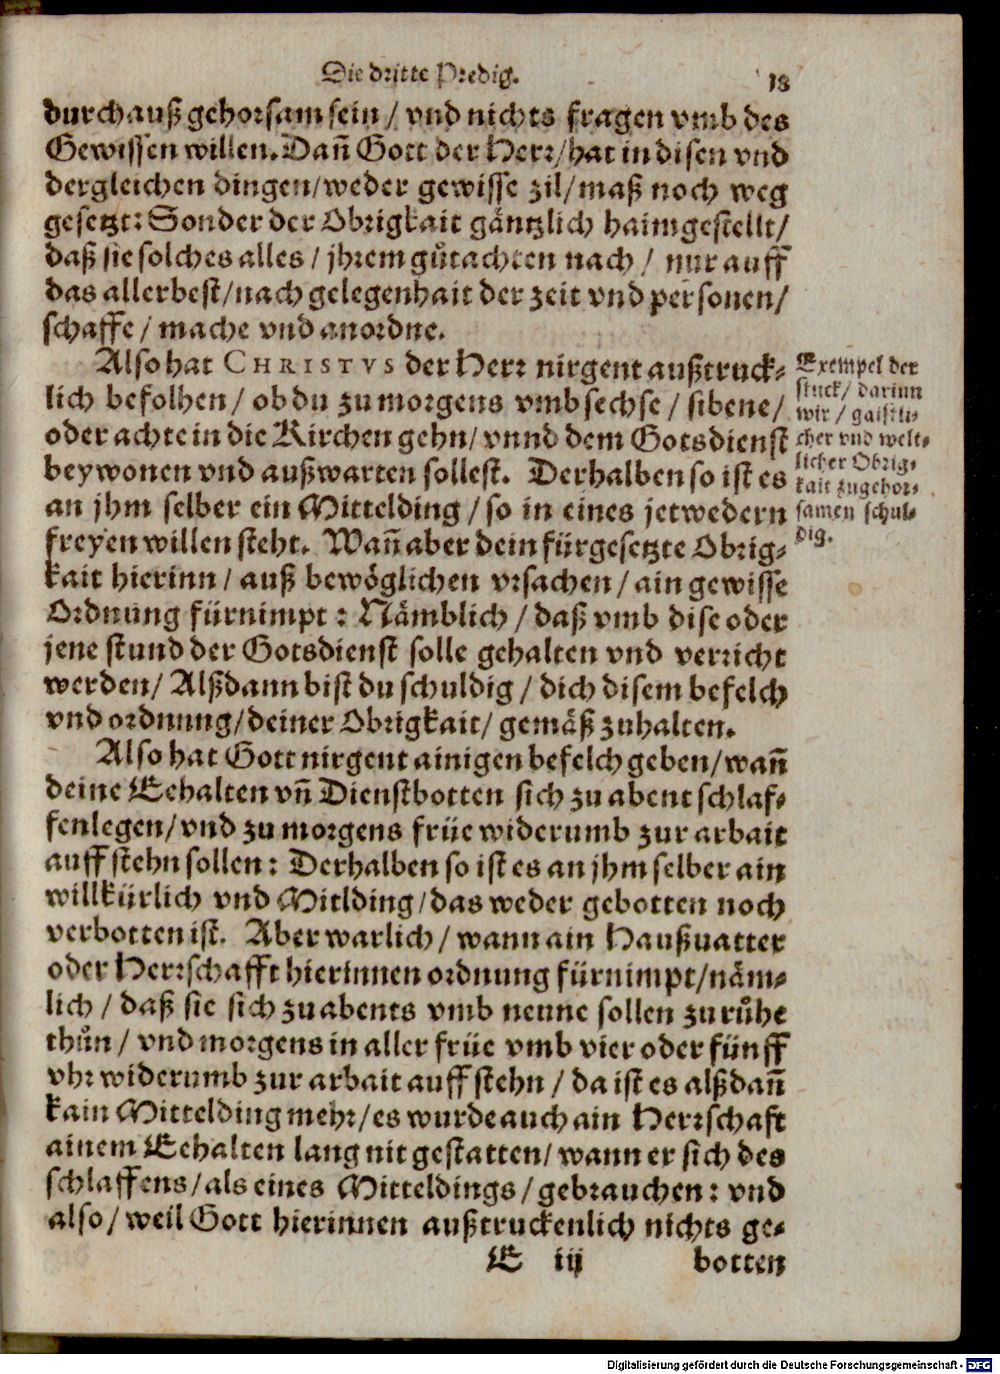 Die dritte Predig.
18
durchauß gehorsam sein / vnd nichts fragen vmb des
Gewissen willen. Dañ Gott der Herr / hat in disen vnd
dergleichen dingen / weder gewisse zil / maß noch weg
gesetzt: Sonder der Obrigkait gäntzlich haimgestellt /
daß sie solches alles / jhrem gůtachten nach / nur auff
das allerbest / nach gelegenhait der zeit vnd personen /
schaffe / mache vnd anordne.
Also hat CHRISTVS der Herr nirgent außtruck-
lich befolhen / ob du zu morgens vmb sechse / sibene /
oder achte in die Kirchen gehn / vnnd dem Gotsdienst
beywonen vnd außwarten sollest. Derhalben so ist es
an jhm selber ein Mittelding / so in eines jetwedern
freyen willen steht. Wañ aber dein fürgesetzte Obrig-
kait hierinn / auß bewöglichen vrsachen / ain gewisse
Ordnung fürnimpt: Nämblich / daß vmb dise oder
jene stund der Gotsdienst solle gehalten vnd verricht
werden / Alßdann bist du schuldig / dich disem befelch
vnd ordnung / deiner Obrigkait / gemäß zuhalten.
Exempel der
stuck / darinn
wir / gaistli-
cher vnd welt-
licher Obrig-
kait zugehor-
samen schul-
dig.
Also hat Gott nirgent ainigen befelch geben / wañ
deine Eehalten vñ Dienstbotten sich zu abent schlaf-
fen legen / vnd zu morgens früe widerumb zur arbait
auff stehn sollen: Derhalben so ist es an jhm selber ain
willkürlich vnd Mitlding / das weder gebotten noch
verbotten ist. Aber warlich / wann ain Haußuatter
oder Herrschafft hierinnen ordnung fürnimpt / näm-
lich / daß sie sich zu abents vmb neune sollen zu růhe
thůn / vnd morgens in aller früe vmb vier oder fünff
vhr widerumb zur arbait auff stehn / da ist es alßdañ
kain Mittelding mehr / es wurde auch ain Herrschaft
ainem Eehalten lang nit gestatten / wann er sich des
schlaffens / als eines Mitteldings / gebrauchen: vnd
also / weil Gott hierinnen außtruckenlich nichts ge-
E iij botten
Digitalisierung gefördert durch die Deutsche Forschungsgemeinschaft - DFG